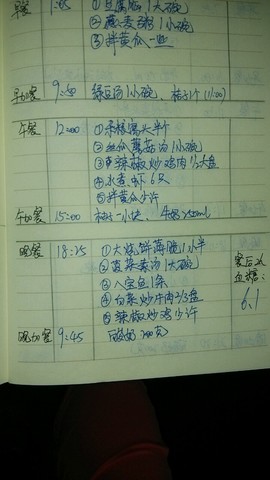 早餐 7:25 ①豆腐脑1大碗
②燕麦粥1小碗
③拌黄瓜一些
早加餐 9:50 绿豆汤1小碗、桔子1个(11:00)
午餐 12:00 ①杂粮窝头半个
②丝瓜蘑菇汤1小碗
③辣椒炒鸡肉1/2大盘
④水煮虾6只
⑤拌黄瓜少许
午加餐 15:00 一小块、牛奶250ml
晚餐 18:25 ①大烧饼薄脆1小半
②菠菜素汤1大碗
③八宝鱼1条
④白菜炒牛肉2/3盘
⑤辣椒炒鸡少许
餐后2h
血糖:
6.1
晚加餐 9:45 酸奶200克